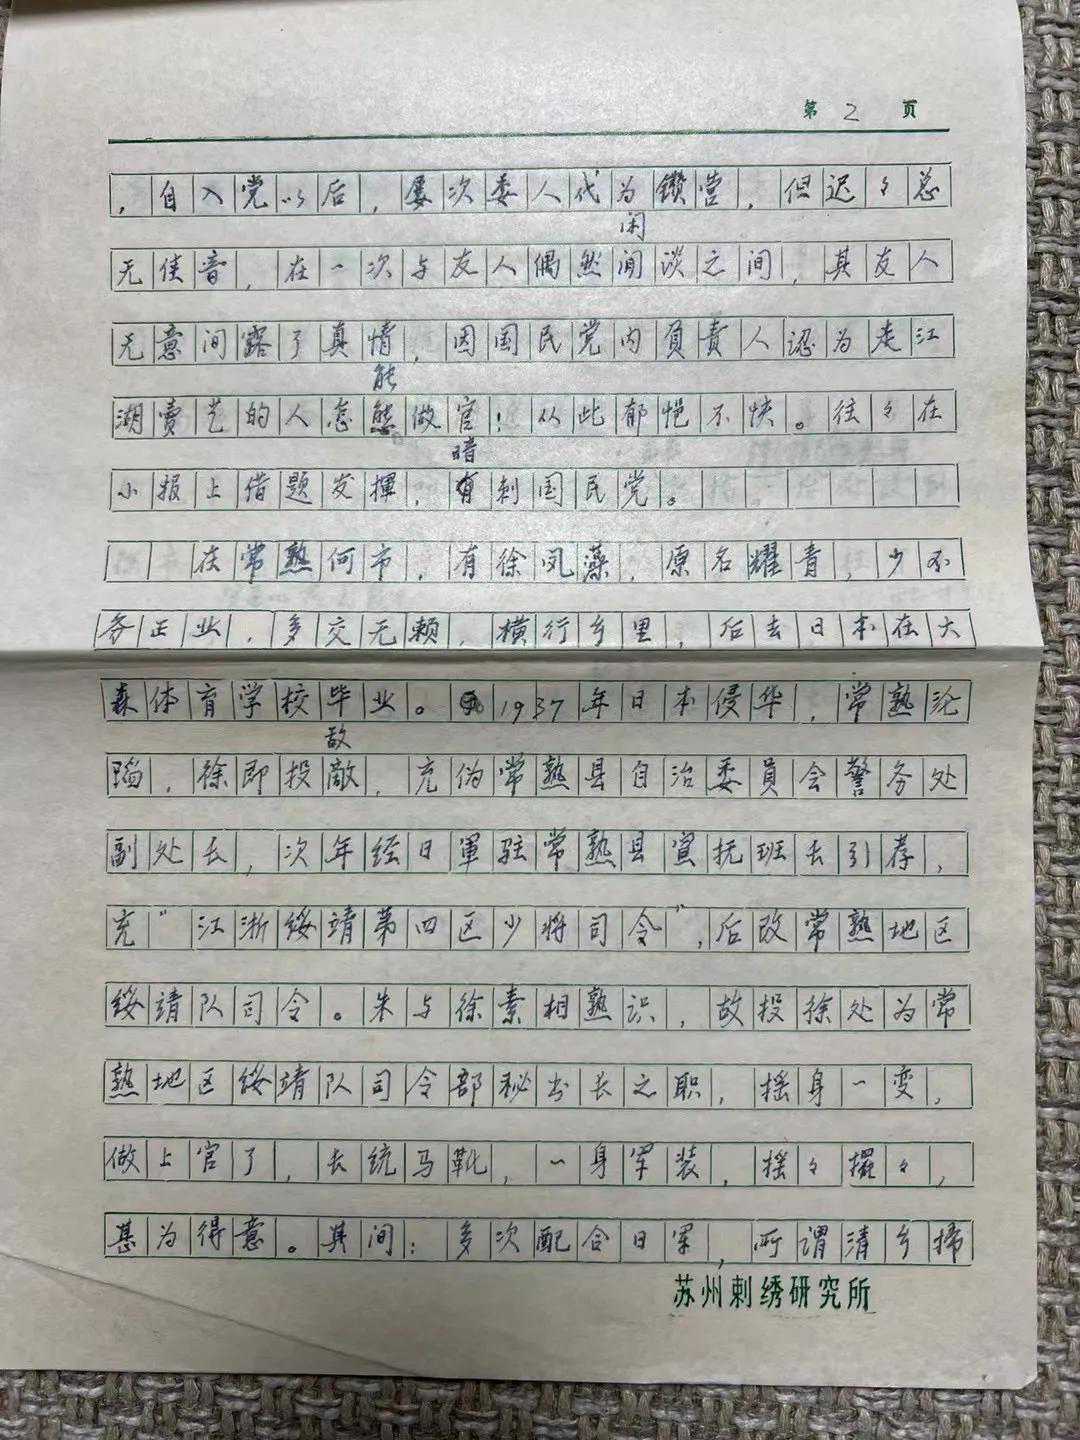 第 2 页
，自入党以后，屡次委人代为鑽营，但迟々总
闲
无佳音，在一次与友人偶然间谈之间，其友人
无意间露了真情，因国民党内負責人認为走江
能
湖賣艺的人怎態做官！从此郁悒不快。往々在
暗
小报上借题发揮，有刺国民党。
在常熟何市，有徐凤藻，原名耀青，少不
务正业，多交无赖，横行乡里，后去日本在大
森体育学校毕业。1937年日本侵华，常熟沦
敌
陷，徐即投敵，充伪常熟县自治委員会警务处
副处长，次年经日軍驻常熟县宣抚班长引荐，
充“江浙绥靖第四区少将司令”，后改常熟地区
绥靖队司令。朱与徐素相熟识，故投徐处为常
熟地区绥靖队司令部秘书长之职，摇身一变，
做上官了，长统马靴，一身军装，摇々擺々，
甚为得意。其间：多次配合日军，所谓清乡掃
苏州刺绣研究所